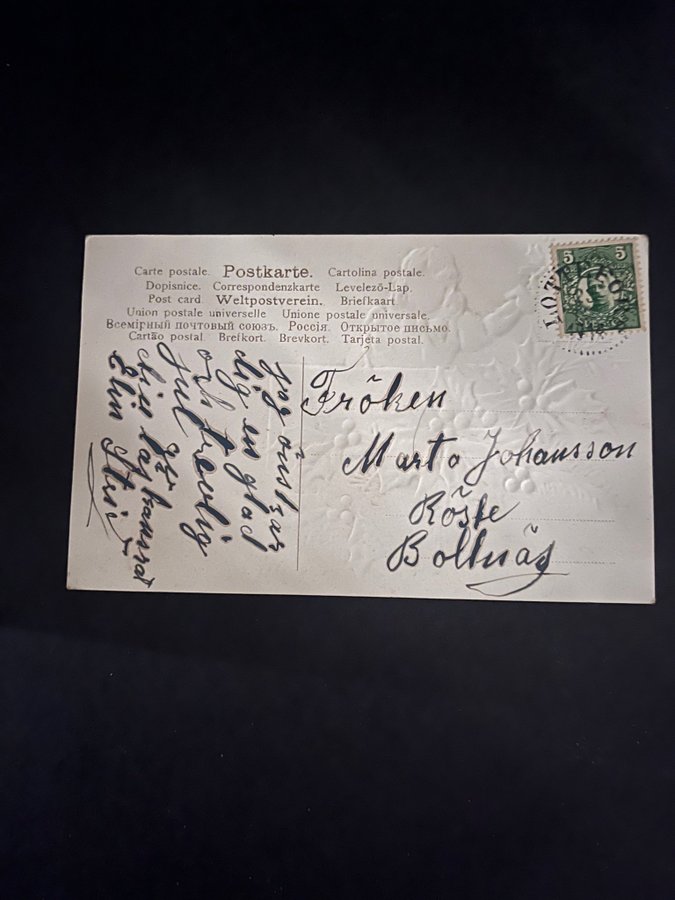 Carte postale. Postkarte. Cartolina postale.
Dopisnice. Correspondenzkarte Levelező-Lap.
Post card. Weltpostverein. Briefkaart
Union postale universelle Unione postale universale.
Всемірный почтовый союзъ. Россія. Открытое письмо.
Cartão postal. Brefkort. Brevkort. Tarjeta postal.
5 5
jag önskar
dig en glad
och trevlig
jul
din
Elin
Fröken
Marta Johansson
Röste
Bollnäs